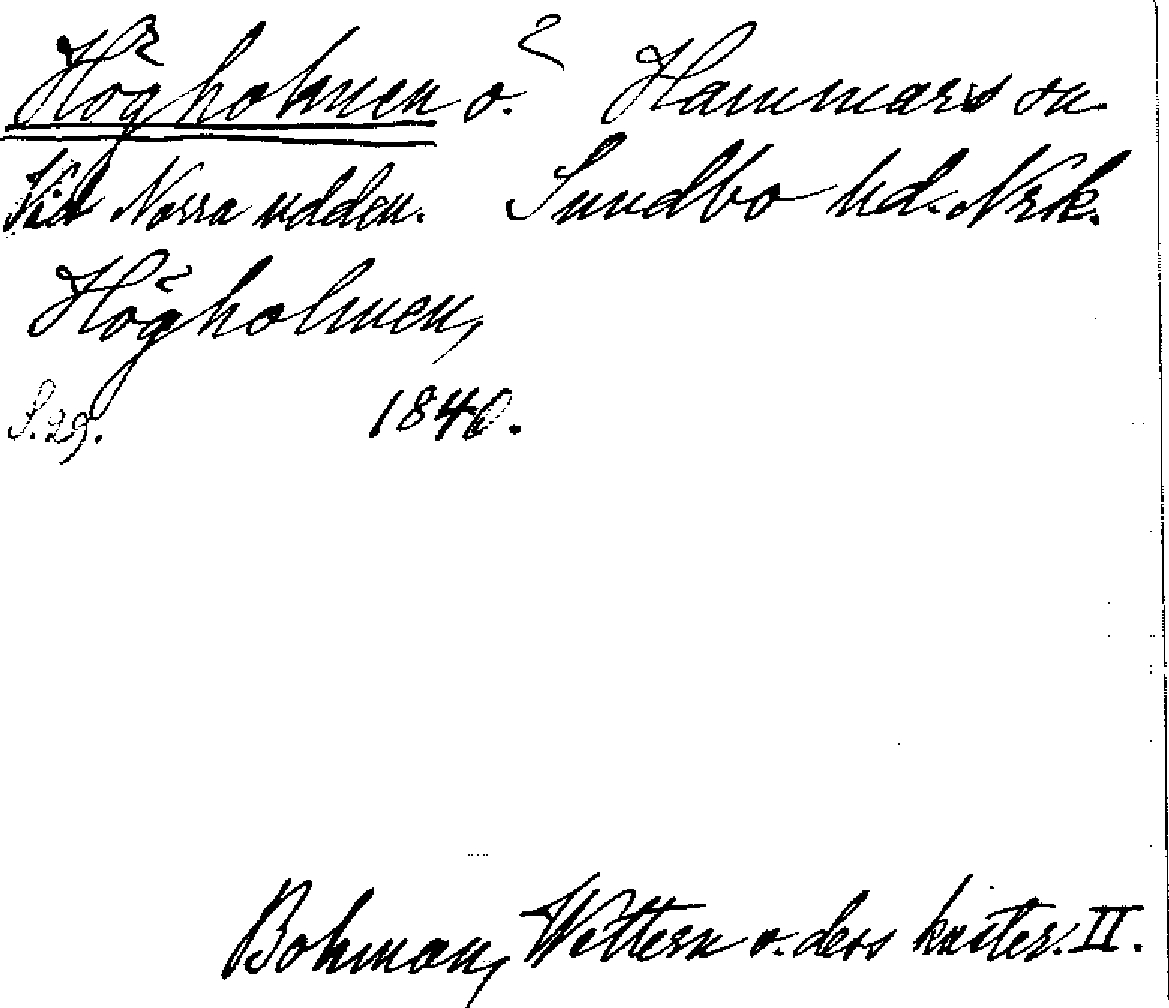 Högholmen ö. Hammars sn.
Vid Norra udden. Sundbo hd. Nrk.
Högholmen,
S. 29. 1840.
Bohman, Wettern o. dess kuster. II.